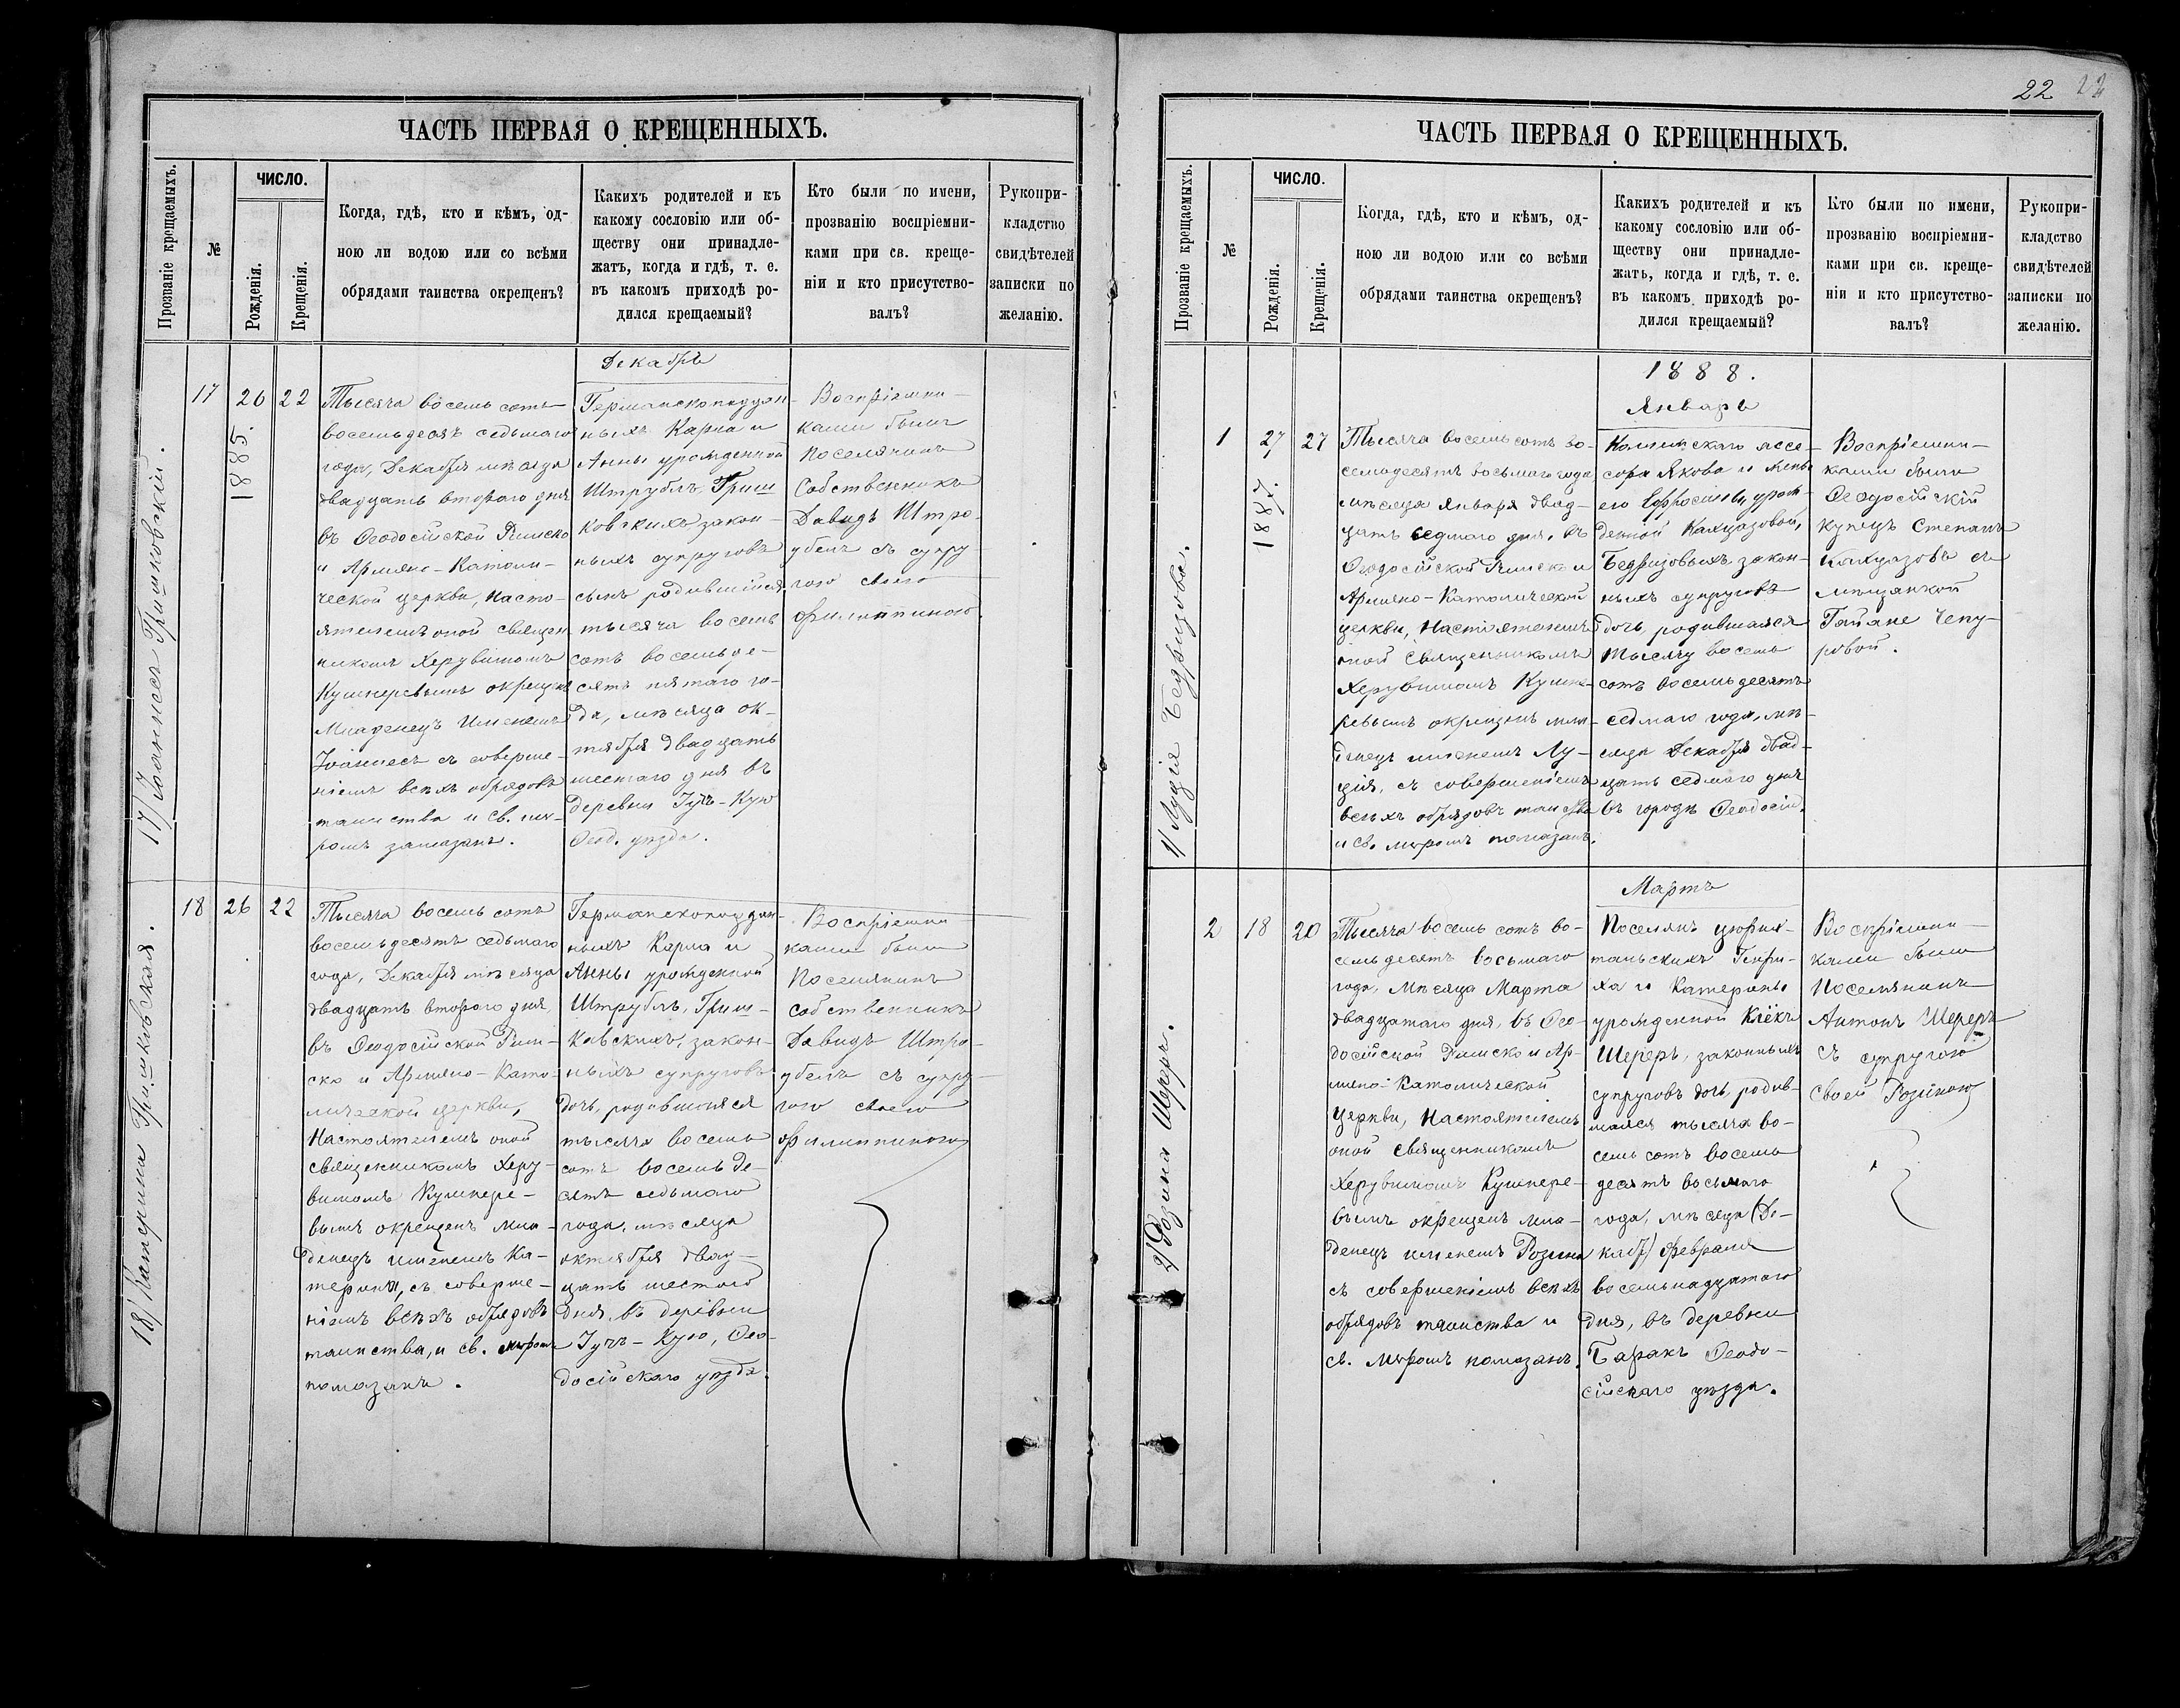 ЧАСТЬ ПЕРВАЯ О КРЕЩЕННЫХЪ.
Прозваніе крещаемыхъ.
№
ЧИСЛО.
Рожденія.
Крещенія.
Когда, гдѣ, кто и кѣмъ, од-
ною ли водою или со всѣми
обрядами таинства окрещенъ?
Какихъ родителей и къ
какому сословію или об-
ществу они принадле-
жатъ, когда и гдѣ, т. е.
въ какомъ приходѣ ро-
дился крещаемый?
Кто были по имени,
прозванію воспріемни-
ками при св. креще-
ніи и кто присутство-
валъ?
Рукопри-
кладство
свидѣтелей
записки по
желанію.
Декабрь
17/ Іоаннесъ Гришковскій.
17
26
1885.
22
Тысяча восемь сотъ
восемьдесятъ седьмаго
года, Декабря мѣсяца
двадцать втораго дня
въ Ѳеодосійской Римско
и Армяно-Католи-
ческой церкви, Насто-
ятелемъ оной священ
никомъ Херувимомъ
Кушнеревымъ окрещенъ
Младенецъ именемъ
Іоаннесъ съ соверше-
ніемъ всѣхъ обрядовъ
таинства и св. мѵ-
ромъ замазанъ.
Германскоподдан-
ныхъ Карла и
Анны урожденной
Штрублъ, Гриш
ковскихъ закон-
ныхъ супруговъ
сынъ родившійся
тысяча восемь
сотъ восемьде-
сятъ пятаго го-
да, мѣсяца ок-
тября двадцать
шестаго дня въ
деревни Јучъ-Кую
Ѳеод. уѣзда.
Воспріемни-
ками были
Поселянинъ
Собственникъ
Давидъ Штро-
убелъ съ супру-
гою своею
Филиппиною.
18/ Катерина Гришковская.
18
26
22
Тысяча восемь сотъ
восемьдесятъ седьмаго
года, Декабря мѣсяца
двадцать втораго дня,
въ Ѳеодосійской Рим-
ско и Армяно-Като-
лической церкви,
Настоятелемъ оной
священникомъ Херу-
вимомъ Кушнере-
вымъ окрещенъ мла-
денецъ именемъ Ка-
терина, съ соверше-
ніемъ всѣхъ обрядовъ
таинства, и св. мѵромъ
помазанъ.
Германскоподдан-
ныхъ Карла и
Анны урожденной
Штрублъ, Гриш-
ковскихъ, закон-
ныхъ супруговъ
дочь, родившаяся
тысяча восемь
сотъ восемьде-
сятъ седьмаго
года, мѣсяца
октября двад-
цать шестого
дня, въ деревни
Јучъ-Кую, Ѳео-
досійскаго уѣзда.
Воспріемни
ками были
Поселянинъ
собственникъ
Давидъ Штро-
убелъ съ супру-
гою своею
Филиппиною
22
22
ЧАСТЬ ПЕРВАЯ О КРЕЩЕННЫХЪ.
Прозваніе крещаемыхъ.
№
ЧИСЛО.
Рожденія.
Крещенія.
Когда, гдѣ, кто и кѣмъ, од-
ною ли водою или со всѣми
обрядами таинства окрещенъ?
Какихъ родителей и къ
какому сословію или об-
ществу они принадле-
жатъ, когда и гдѣ, т. е.
въ какомъ приходѣ ро-
дился крещаемый?
Кто были по имени,
прозванію воспріемни-
ками при св. креще-
ніи и кто присутство-
валъ?
Рукопри-
кладство
свидѣтелей
записки по
желанію.
1888.
Январь
1/ Луція Бедризова.
1
27
1887.
27
Тысяча восемь сотъ во-
семьдесятъ восьмаго года
мѣсяца Января двад-
цать седмаго дня, въ
Ѳеодосійской Римско и
Армяно-Католической
церкви, Настоятелемъ
оной священникомъ
Херувимомъ Кушне-
ревымъ окрещенъ мла-
денецъ именемъ Лу-
ція, съ совершеніемъ
всѣхъ обрядовъ таинства
и св. мѵромъ помазанъ.
Коллежскаго ассе-
сора Якова и жены
его Ефросиніи урож-
денной Калуазовой,
Бедризовыхъ закон-
ныхъ супруговъ
дочь, родившаяся
тысячу восемь
сотъ восемьдесятъ
седмаго года, мѣ-
сяца Декабря двад-
цать седмаго дня
въ городѣ Ѳеодосіи.
Воспріемни-
ками были
Ѳеодосійскій
купецъ Степанъ
Калуазовъ съ
мѣщанкой
Гаіане Чепу-
ровой.
Мартъ
2/ Розина Шереръ.
2
18
20
Тысяча восемь сотъ во-
семьдесятъ восьмаго
года, Мѣсяца Марта
двадцатаго дня, въ Ѳео-
досійской Римско и Ар-
мяно-Католической
Церкви, Настоятелемъ
оной священникомъ
Херувимомъ Кушнере-
вымъ окрещенъ мла-
денецъ именемъ Розина
съ совершеніемъ всѣхъ
обрядовъ таинства и
св. Мѵромъ помазанъ.
Поселянъ цюрих-
тальскихъ Генри-
ха и Катерины
урожденной Клёкъ
Шереръ, законныхъ
супруговъ дочь, родив-
шаяся тысяча во-
семь сотъ восемь
десятъ восьмаго
года, мѣсяца (Де-
кабр) Февраля
восемьнадцатаго
дня, въ деревни
Баракъ Ѳеодо-
сійскаго уѣзда.
Воспріемни-
ками были
Поселянинъ
Антонъ Шереръ
съ супругою
своей Розіною